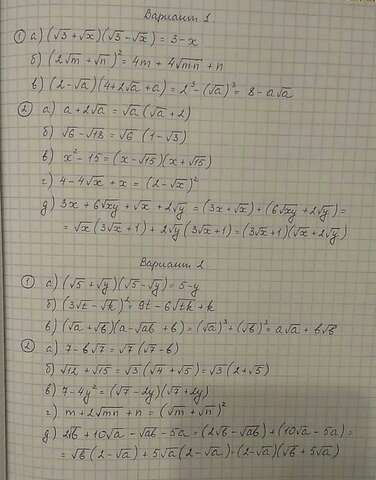 Вариант 1
① а) (√3 + √x)(√3 - √x) = 3 - x
б) (2√m + √n)² = 4m + 4√mn + n
в) (2 - √a)(4 + 2√a + a) = 2³ - (√a)³ = 8 - a√a
② а) a + 2√a = √a (√a + 2)
б) √6 - √18 = √6 (1 - √3)
в) x² - 15 = (x - √15)(x + √15)
г) 4 - 4√x + x = (2 - √x)²
д) 3x + 6√xy + √x + 2√y = (3x + √x) + (6√xy + 2√y) =
= √x (3√x + 1) + 2√y (3√x + 1) = (3√x + 1)(√x + 2√y)
Вариант 2
① а) (√5 + √y)(√5 - √y) = 5 - y
б) (3√t - √k)² = 9t - 6√tk + k
в) (√a + √b)(a - √ab + b) = (√a)³ + (√b)³ = a√a + b√b
② а) 7 - b√7 = √7 (√7 - b)
б) √12 + √15 = √3 (√4 + √5) = √3 (2 + √5)
в) 7 - 4y² = (√7 - 2y)(√7 + 2y)
г) m + 2√mn + n = (√m + √n)²
д) 2√b + 10√a - √ab - 5a = (2√b - √ab) + (10√a - 5a) =
= √b (2 - √a) + 5√a (2 - √a) = (2 - √a)(√b + 5√a)